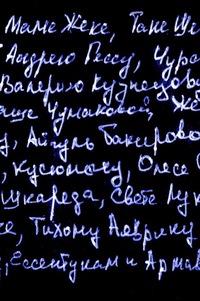 Маме Жеке, Тане Ше
Андрею Гессу, Чура
Валерию Кузнецов
Чумаковой, Же
Айгуль Бакирово
Кусюмочу, Олесе
Шкареда, Свете Лук
Тихому Аверику
Ессентукам и Армав